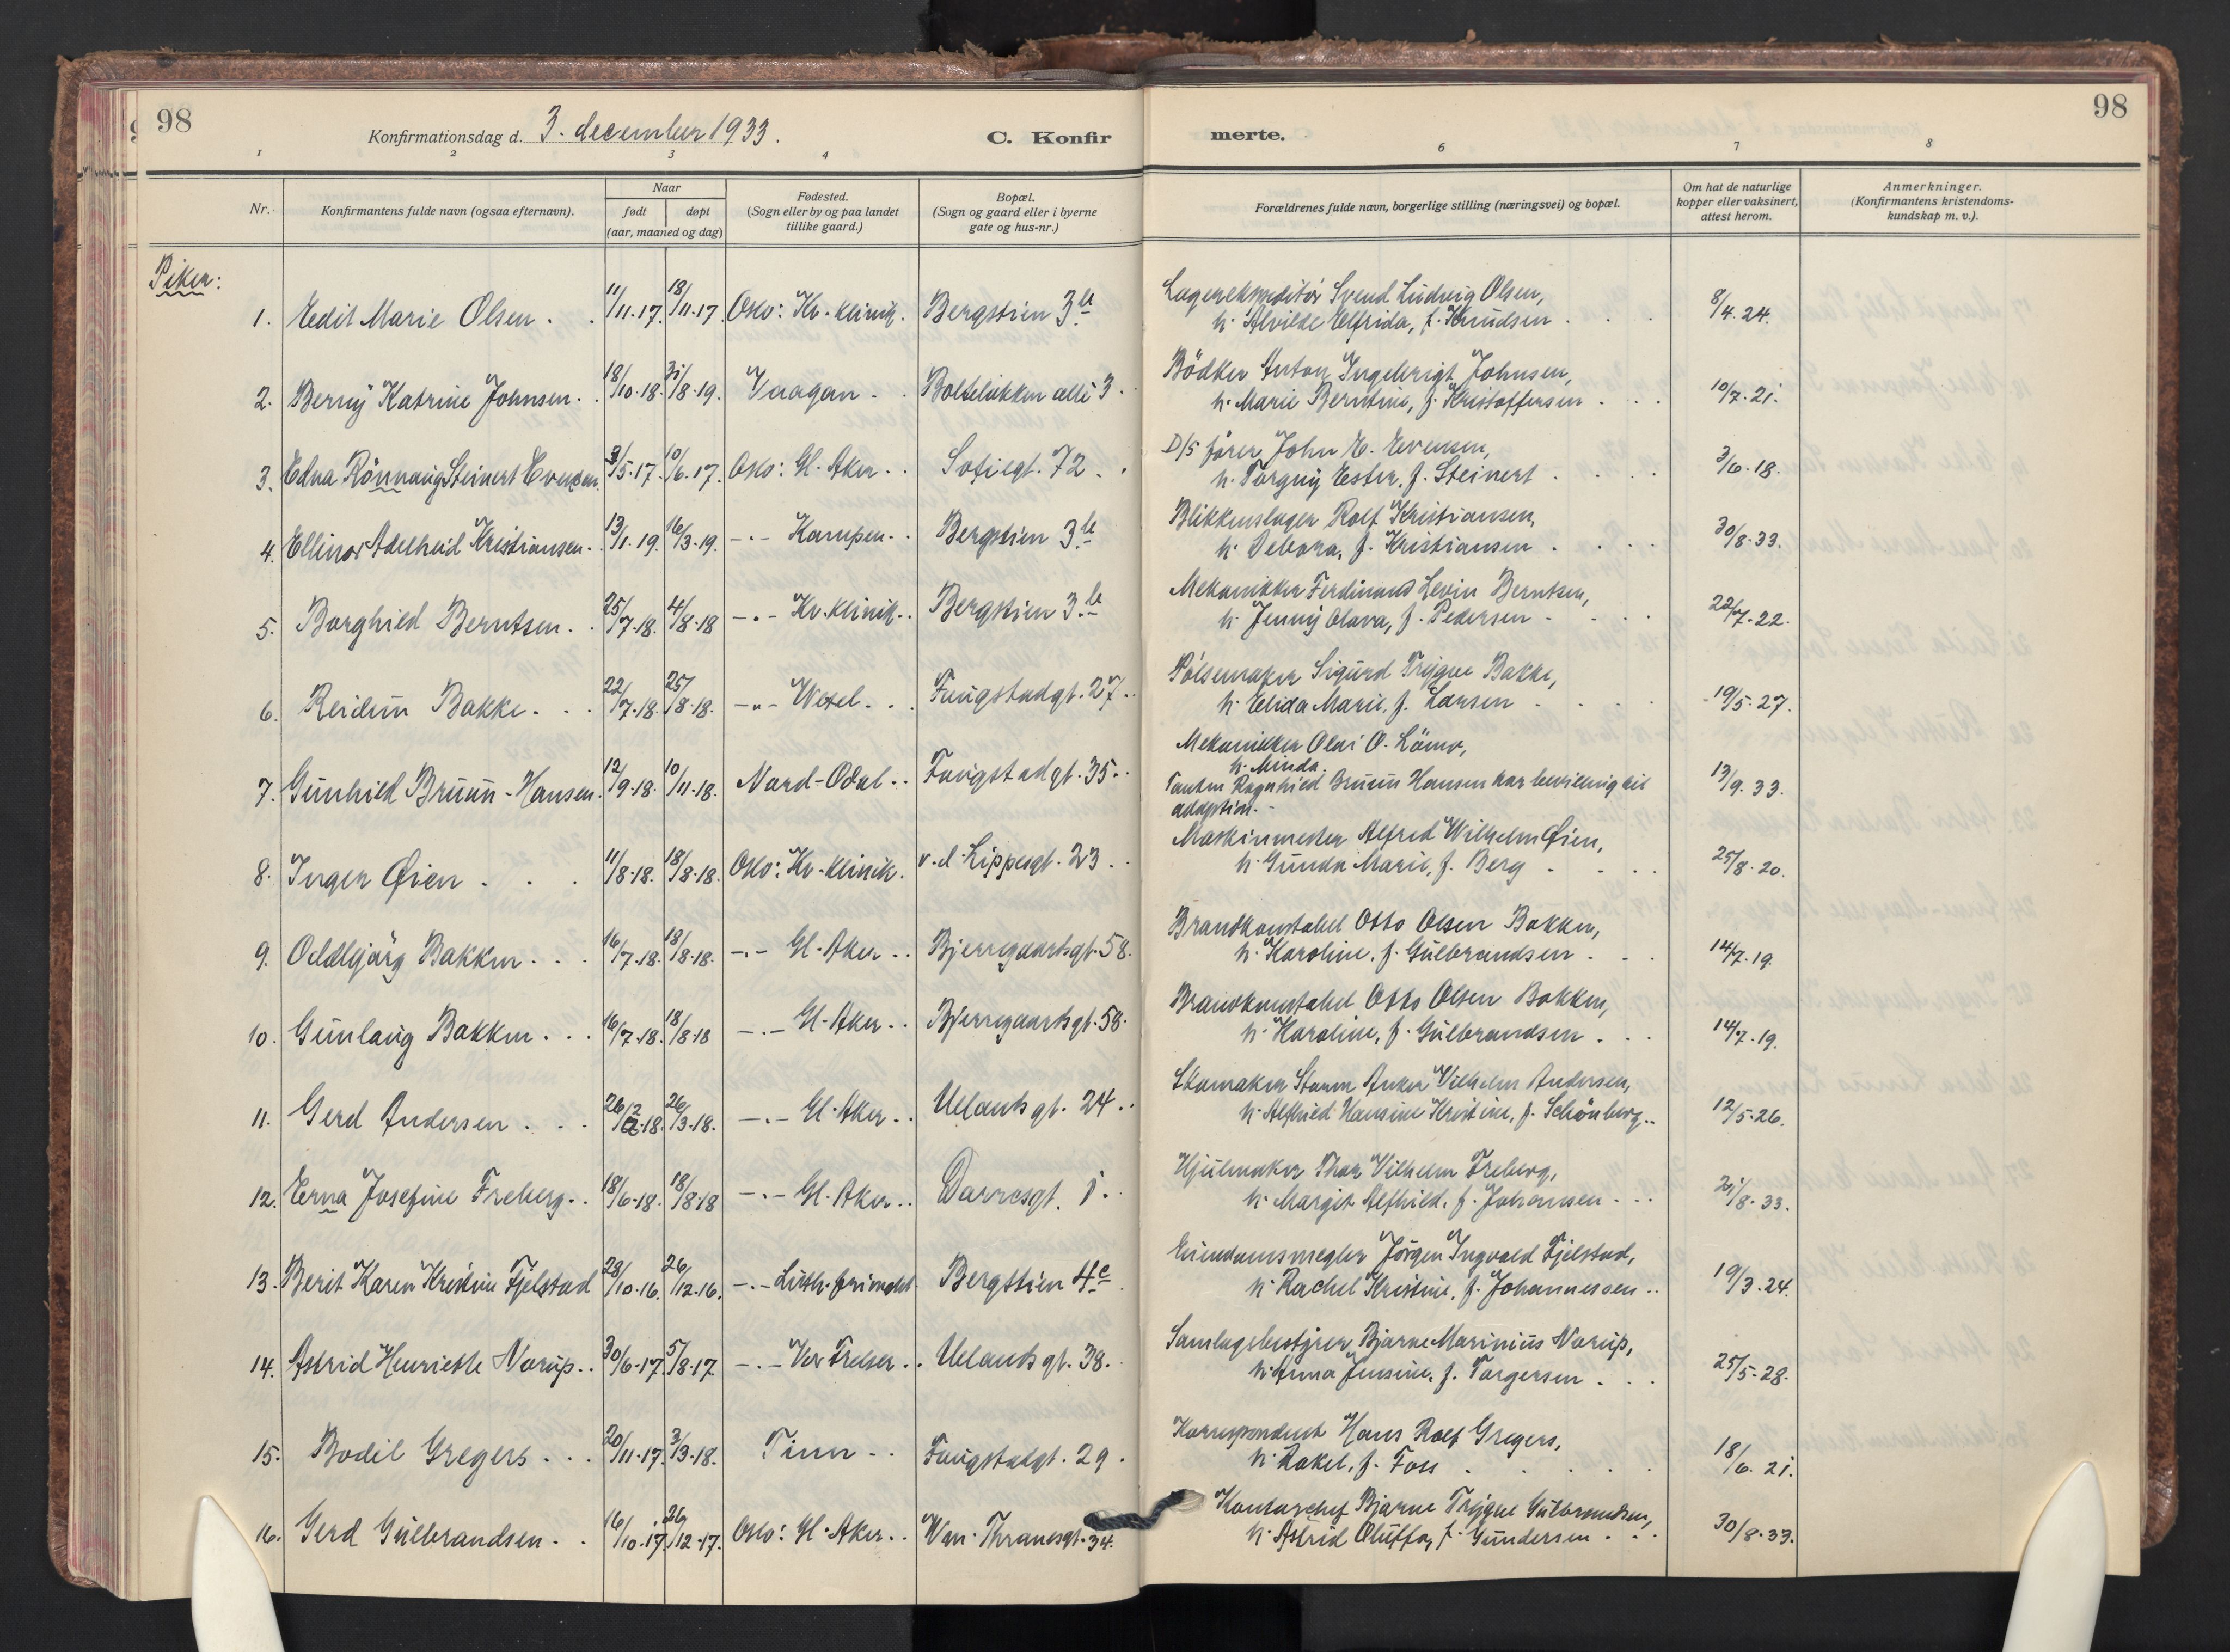 98
Konfirmationsdag d. 3. december 1933.
C. Konfir
merte.
98
1 2 3 4 6 7 8
Nr.
Konfirmantens fulde navn (ogsaa efternavn).
Naar
født døpt
(aar, maaned og dag)
Fødested.
(Sogn eller by og paa landet
tillike gaard.)
Bopæl.
(Sogn og gaard eller i byerne
gate og hus-nr.)
Forældrenes fulde navn, borgerlige stilling (næringsvei) og bopæl.
Om hat de naturlige
kopper eller vaksinert,
attest herom.
Anmerkninger.
(Konfirmantens kristendoms-
kundskap m. v.).
Piker:
1. Edit Marie Olsen. 11/11.17. 18/11.17. Oslo: Kv. klinik. Bergstien 3b
Lagerekspeditör Svend Ludvig Olsen,
h. Alvilde Elfrida, f. Knudsen 8/4.24.
2. Berny Katrine Johnsen. 18/10.18. 31/8.19. Vaagan. Bolteløkken allé 3.
Bödker Anton Ingebrigt Johnsen,
h. Marie Berntine, f. Kristoffersen 10/7.21.
3. Edna Rönnaug Steinert Evensen. 3/5.17. 10/6.17. Oslo: Gl. Aker. Sofiegt. 72.
D/S fører John E. Evensen,
h. Torgny Ester, f. Steinert 3/6.18.
4. Ellinor Adelheid Kristiansen. 13/1.19. 16/3.19. -.- Kampen. Bergstien 3b
Blikkenslager Rolf Kristiansen,
h. Debora, f. Kristiansen 30/8.33.
5. Borghild Berntsen. 25/7.18. 4/8.18 -.- Kv. klinik. Bergstien 3b
Mekanikker Ferdinand Levin Berntsen,
h. Jenny Olava, f. Pedersen 22/7.22.
6. Reidun Bakke. 22/7.18. 25/8.18. -"- Wexel. Fougstadgt. 27.
Pølsemaker Sigurd Trygve Bakke,
h. Elida Marie, f. Larsen 19/5.27.
7. Gunhild Bruun-Hansen. 12/9.18. 10/11.18. Nord-Odal. Fougstadgt. 35.
Mekanikker Olai O. Lömo,
h. Minda.
Tanten Ragnhild Bruun Hansen har bevilling til
adoption. 13/9.33.
8. Inger Øien. 11/8.18. 18/8.18. Oslo: Kv. klinik. v. d. Lippesgt. 23.
Maskinmester Alfred Wilhelm Øien,
h. Gunda Marie, f. Berg 25/8.20.
9. Oddbjørg Bakken. 16/7.18. 18/8.18. -.- Gl. Aker. Bjerregaardsgt. 58.
Brandkonstabel Otto Olsen Bakken,
h. Karoline, f. Gulbrandsen. 14/7.19.
10. Gunlaug Bakken. 16/7.18. 18/8.18 -.- Gl. Aker. Bjerregaardsgt. 58.
Brandkonstabel Otto Olsen Bakken,
h. Karoline, f. Gulbrandsen. 14/7.19.
11. Gerd Andersen. 26/2.18. 26/3.18. -.- Gl. Aker. Uelandsgt. 24.
Skomaker Storm Anker Vilhelm Andersen,
h. Alfhild Hansine Kristine, f. Schönberg. 12/5.26.
12. Erna Josefine Freberg. 18/6.18. 18/8.18 -.- Gl. Aker. Darresgt. 1.
Hjulmaker Thor Vilhelm Freberg,
h. Margit Alfhild, f. Johansen. 21/8.33.
13. Berit Karen Kristine Fjelstad 28/10.16. 26/12.16. -.- Luth. frimght. Bergstien 4c
Eiendomsmegler Jörgen Ingvald Fjelstad,
h. Rachel Kristine, f. Johannessen. 19/3.24.
14. Astrid Henriette Norup. 30/6.17. 5/8.17. -.- Vor Frelser. Uelandsgt. 38.
Samlagsbestyrer Bjarne Marinius Norup,
h. Anna Jensine, f. Torgersen. 25/5.28.
15. Bodil Gregers. 20/11.17. 3/3.18. Tinn. Fougstadgt. 29.
Korrespondent Hans Rolf Gregers,
h. Rakel, f. Foss 18/6.21.
16. Gerd Gulbrandsen. 16/10.17. 26/12.17. Oslo: Gl. Aker. Wm. Thranesgt. 34.
Kontorchef Bjarne Trygve Gulbrandsen,
h. Astrid Oluffa, f. Gundersen. 30/8.33.